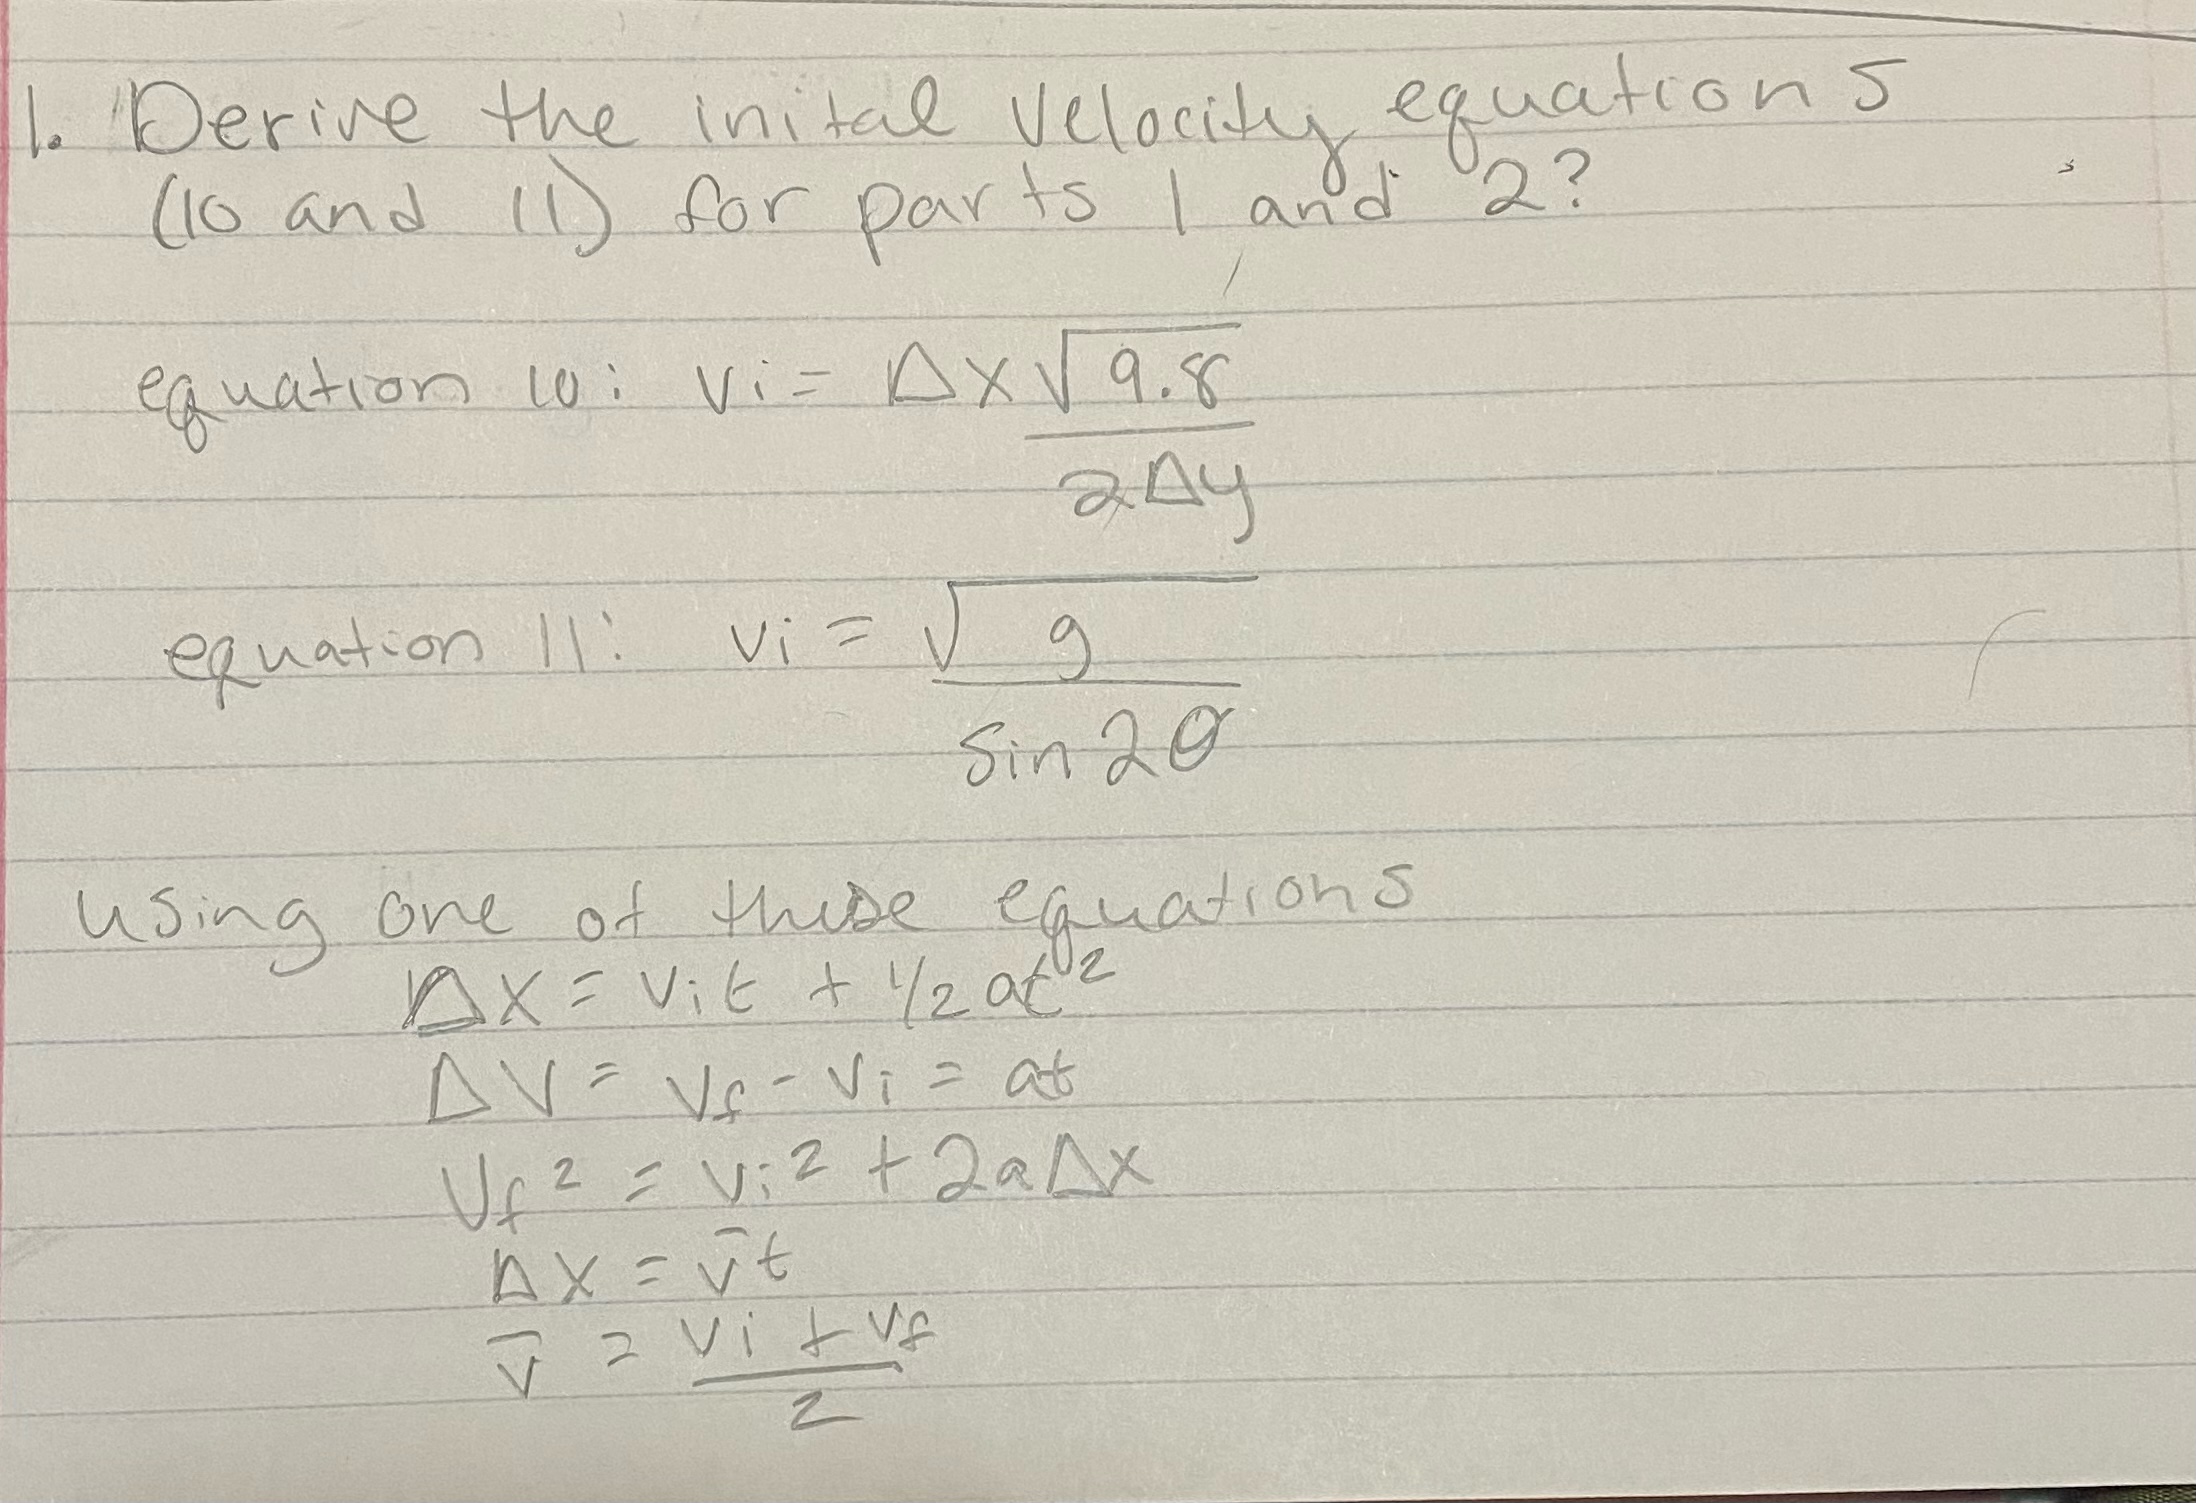 1. Derive the inital velocity equations
(10 and 11) for parts 1 and 2?
equation 10: vi = Δx √9.8
2Δy
equation 11: vi = √g
sin 2θ
using one of these equations
Δx = vit + 1/2 at²
ΔV = Vf - Vi = at
Vf² = Vi² + 2aΔx
Δx = v̄t
v̄ = vi + vf
2